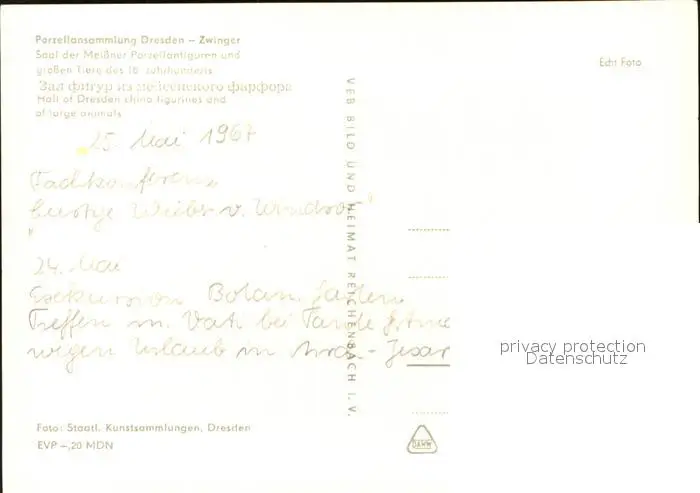 Porzellansammlung Dresden – Zwinger
Saal der Meißner Porzellanfiguren und
großen Tiere des 18. Jahrhunderts
Зал фигур из мейсенского фарфора
Hall of Dresden china figurines and
of large animals
Echt Foto
25. Mai 1967
Fachkonferenz
"Lustige Weiber v. Windsor"
24. Mai
Exkursion Botan. Garten
Treffen m. Vati bei Tante
wegen Urlaub in
VEB BILD UND HEIMAT REICHENBACH I. V.
privacy protection
Datenschutz
Foto: Staatl. Kunstsammlungen, Dresden
EVP –,20 MDN
DAMW